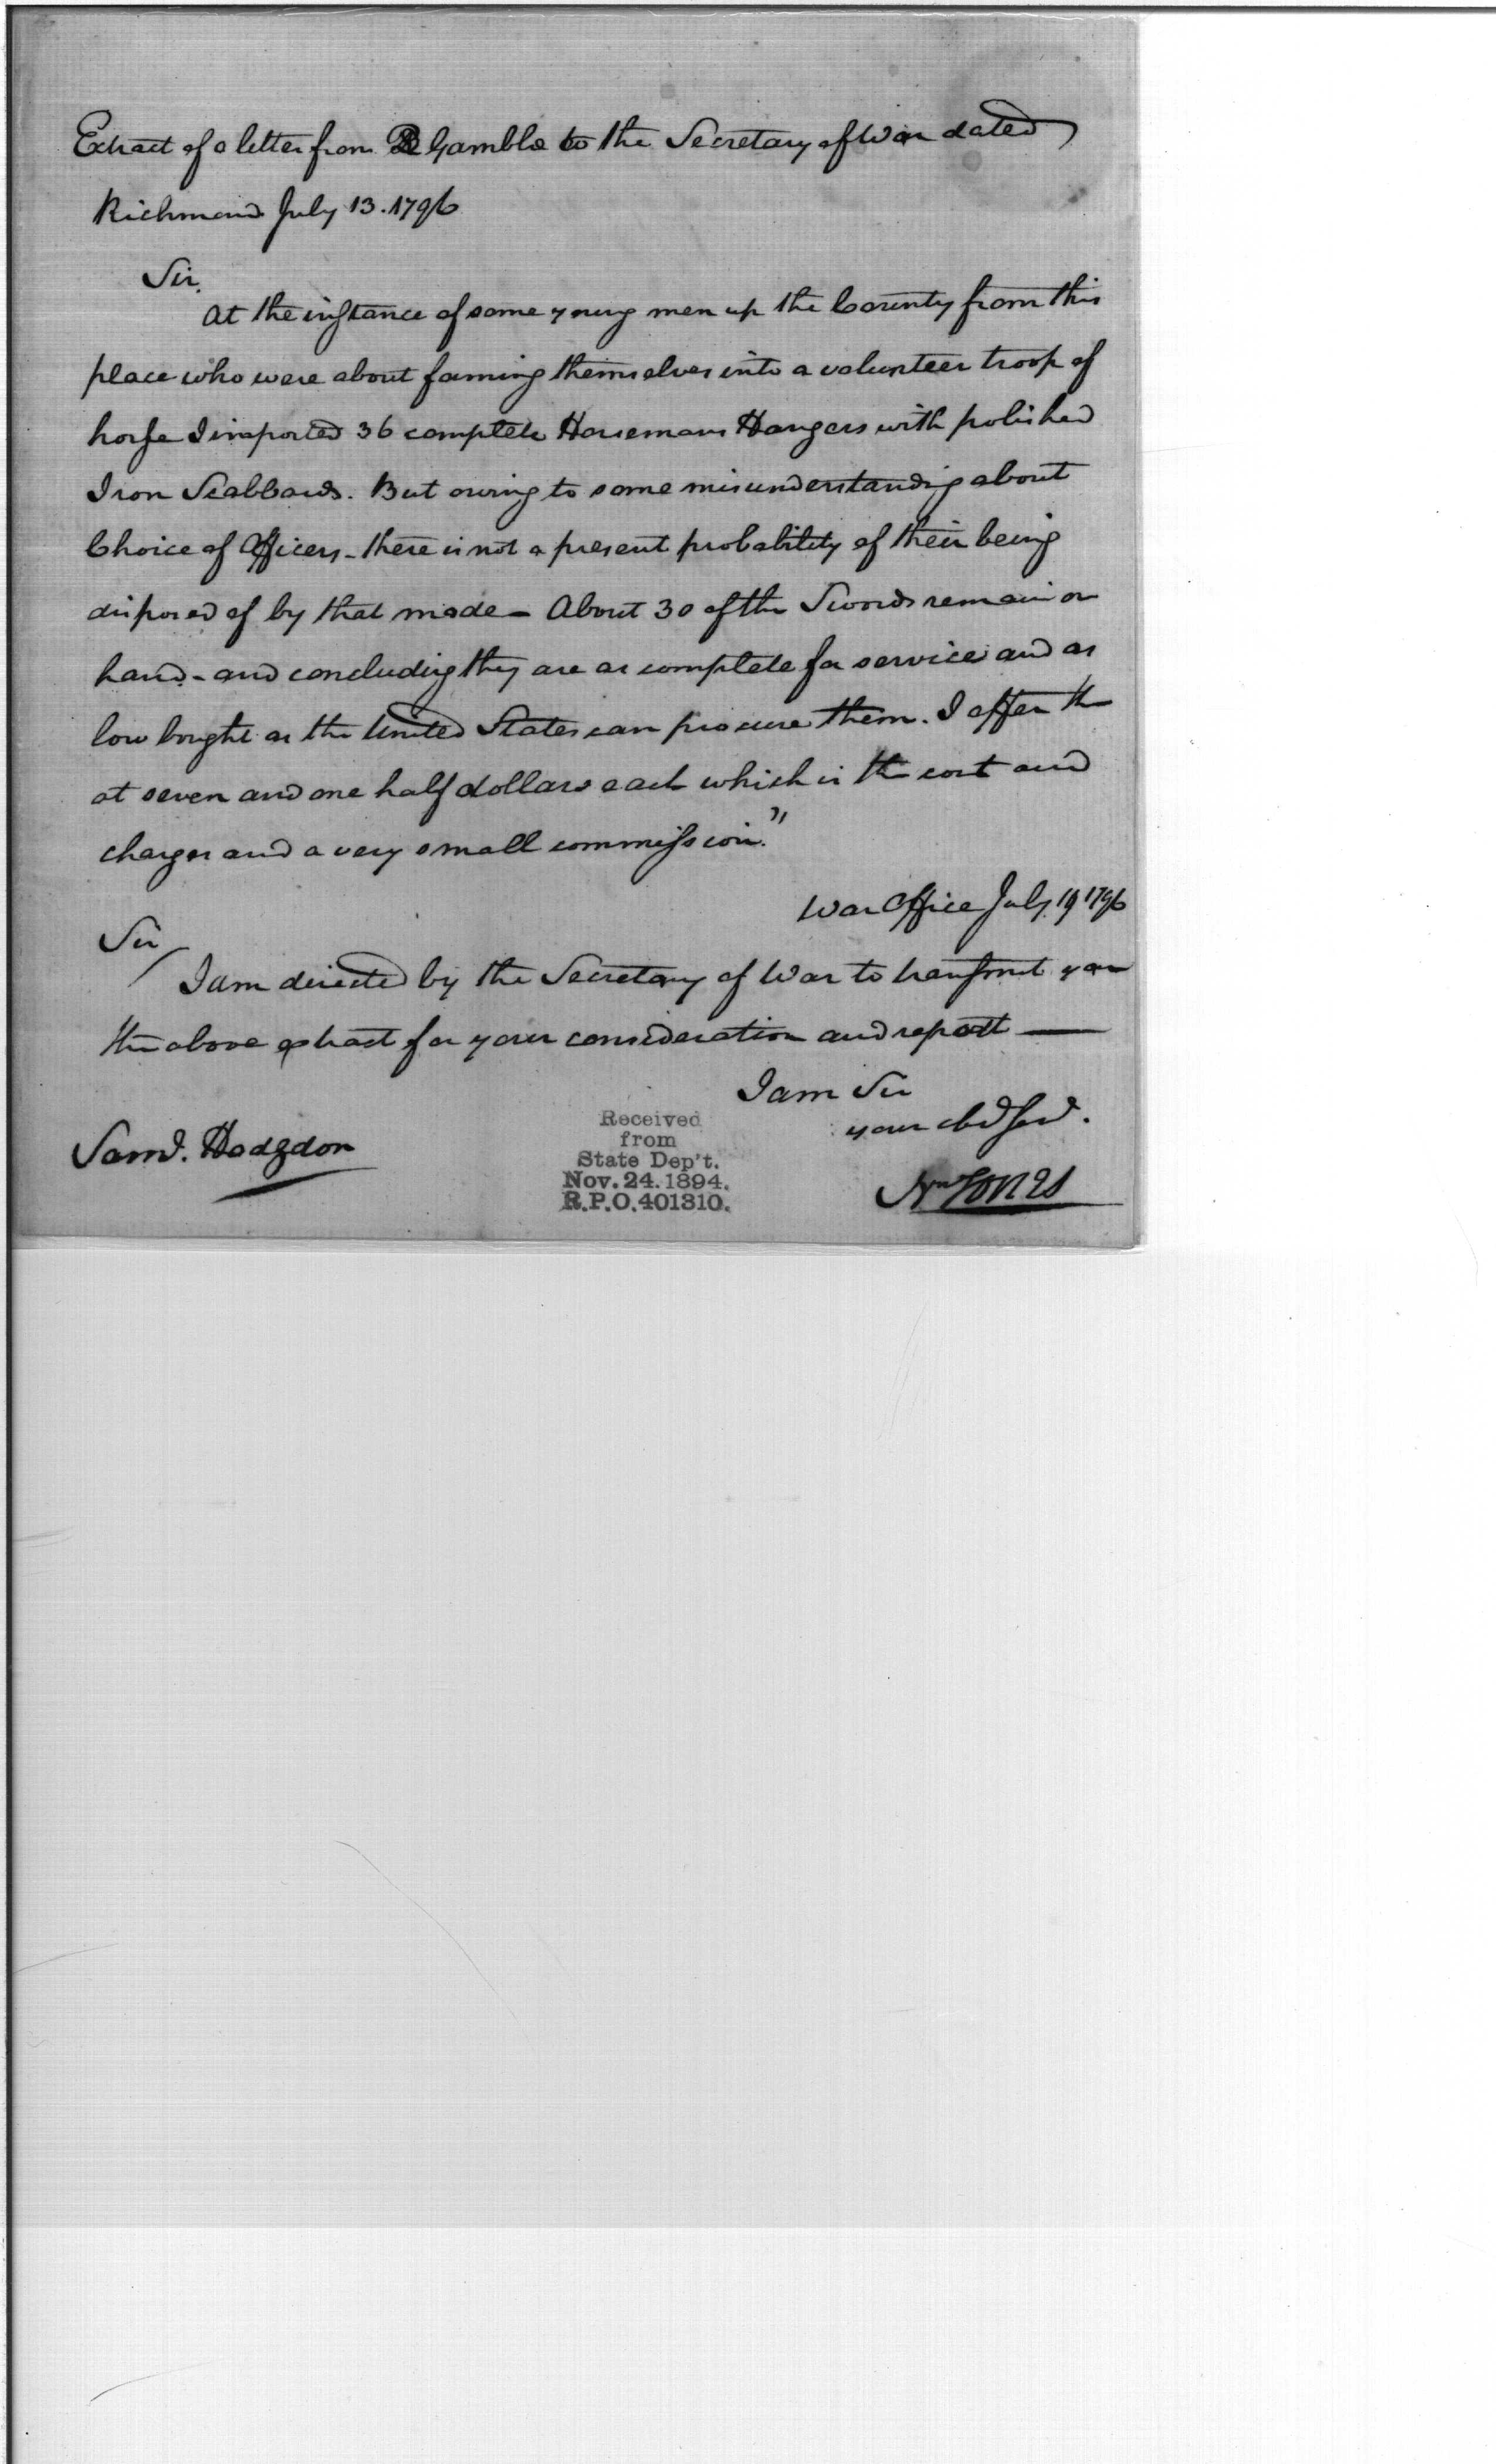 Extract of a letter from R Gamble to the Secretary of War dated
Richmond July 13. 1796
Sir.
At the instance of some young men up the County from this
place who were about forming themselves into a volunteer troop of
horse I imported 36 complete Horsemans Hangers with polished
Iron Scabbards. But owing to some misunderstanding about
Choice of Officers - there is not a present probability of their being
disposed of by that mode - About 30 of the Swords remain on
hand - and concluding they are as complete for service and as
low bought as the United States can procure them. I offer th
at seven and one half dollars each which is the cost and
charges and a very small commission."
War Office July 19 1796
Sir
I am directed by the Secretary of War to transmit you
the above extract for your consideration and report —
I am Sir
your obd Serv.
Saml. Hodgdon
Received
from
State Dep't.
Nov. 24. 1894.
R.P.O. 401310.
Wm Jones